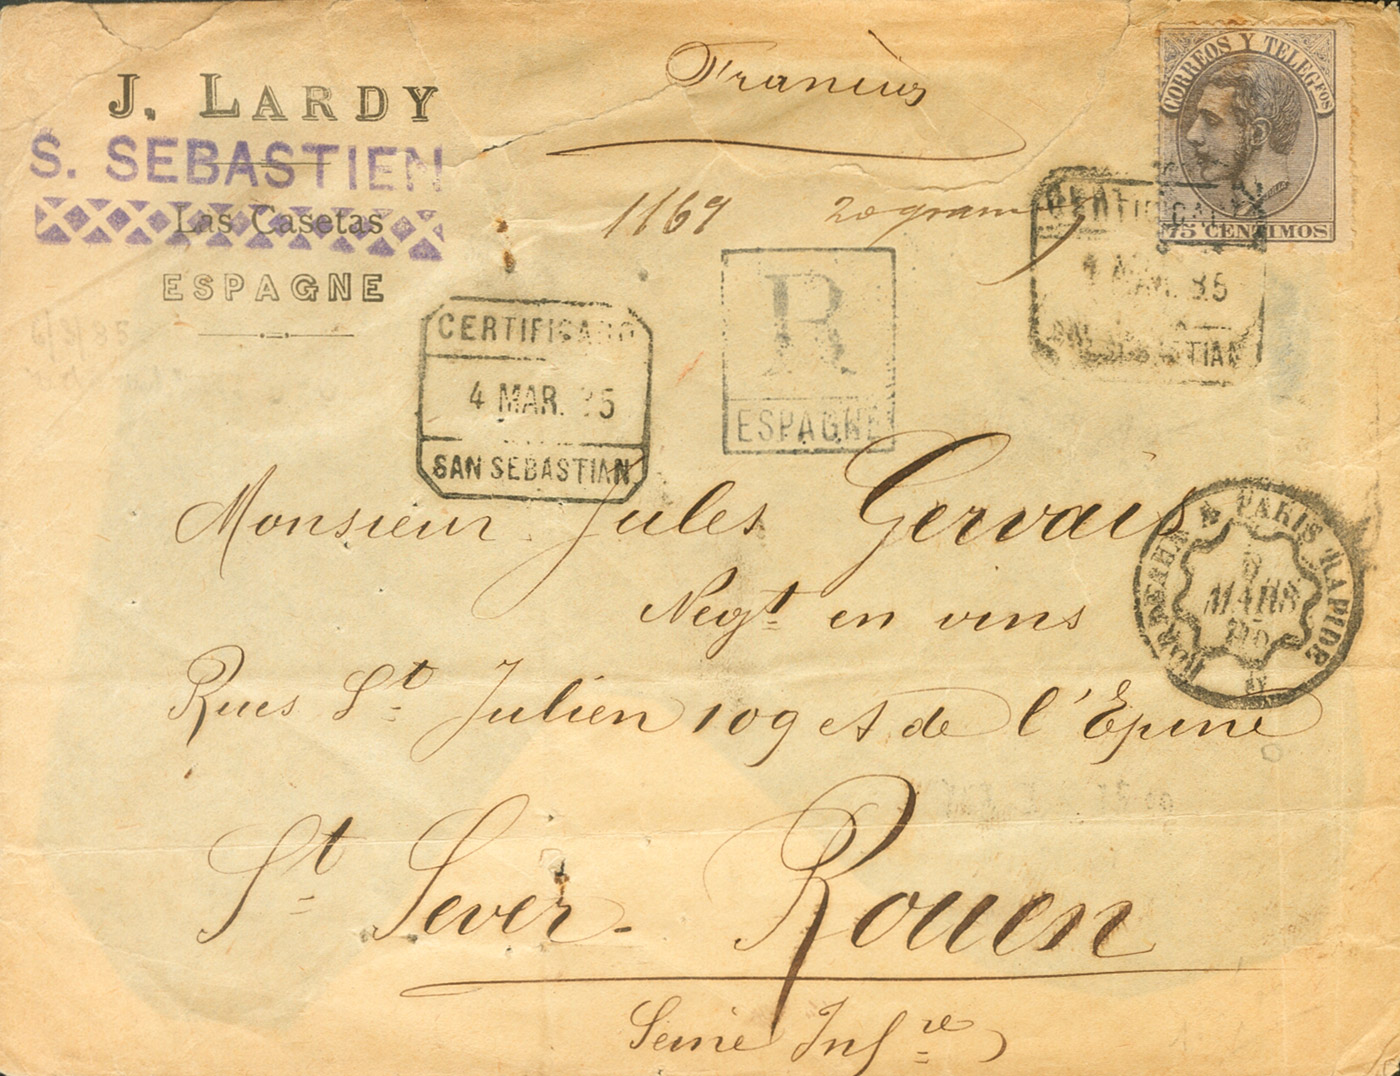 J. LARDY
S. SEBASTIEN
Las Casetas
ESPAGNE
6/3/85
Francias
1169 20 grammes
CORREOS Y TELEGFOS
75 CENTIMOS
CERTIFICADO
4 MAR. 85
SAN SEBASTIAN
R
ESPAGNE
CERTIFICADO
4 MAR. 85
SAN SEBASTIAN
Monsieur Jules Gervais
Negt en vins
PARIS RAPIDE
MARS
Rues St Julien 109 et de l'Epine
St Sever - Rouen
Seine Infre